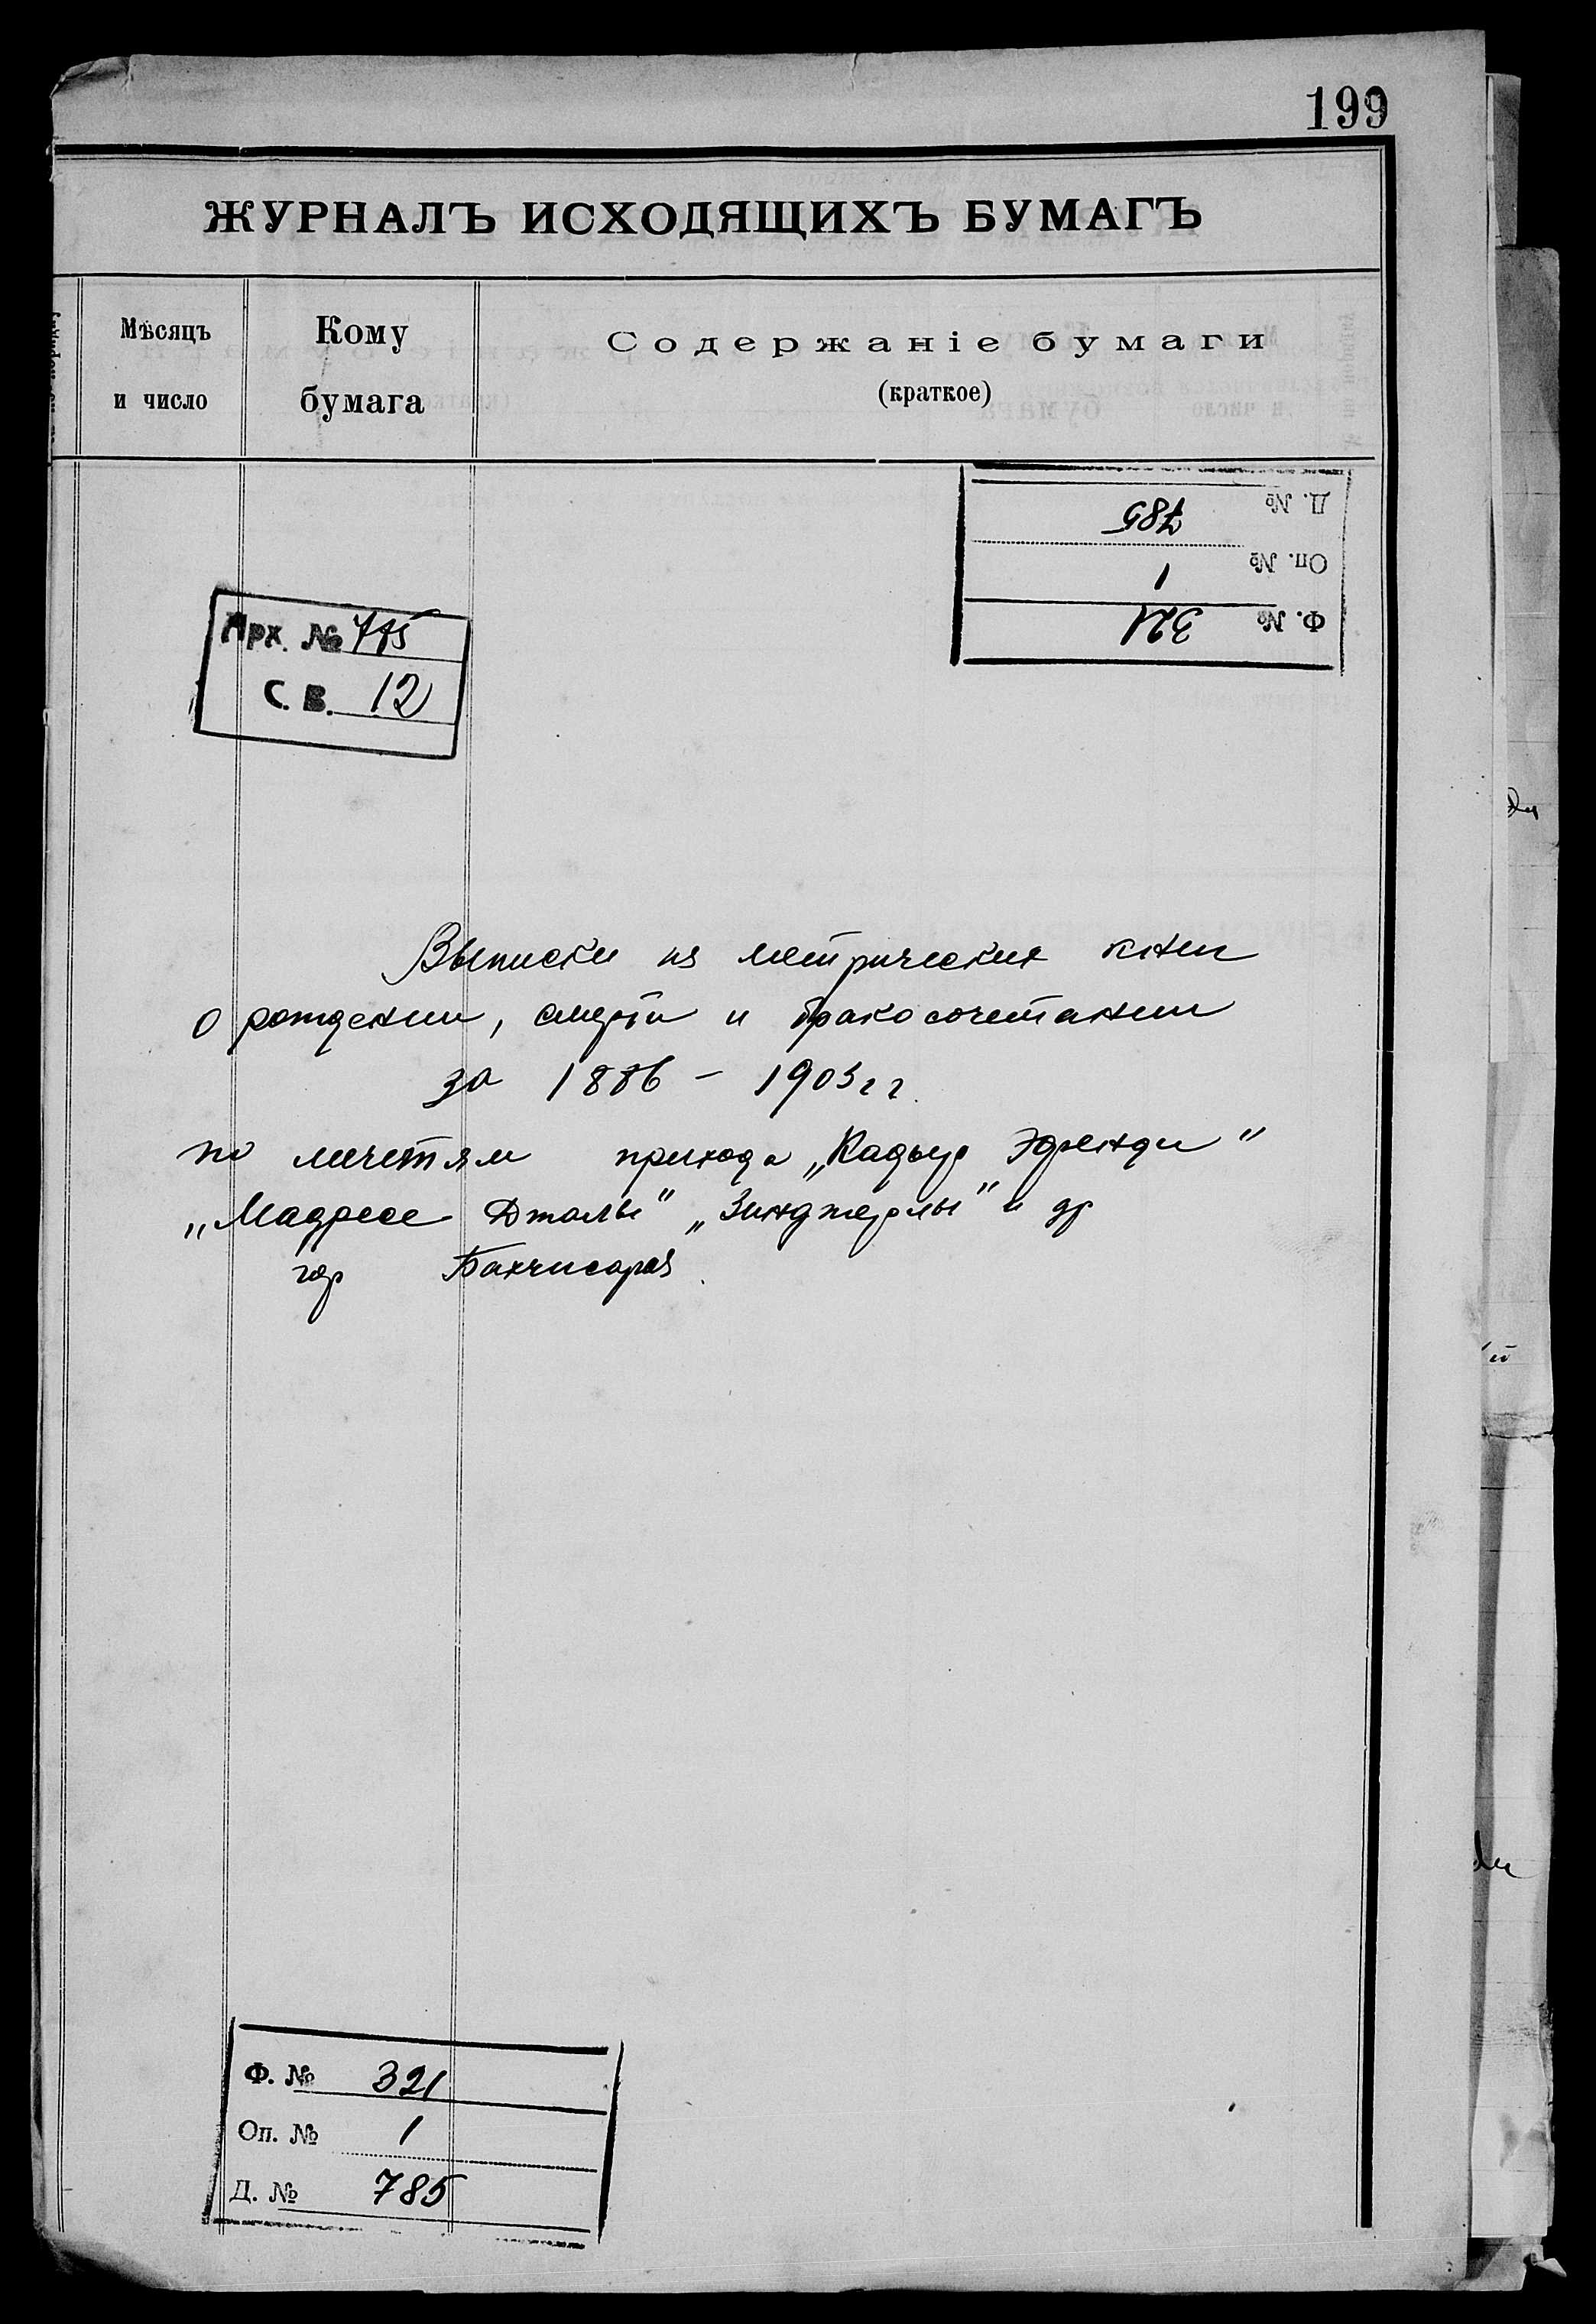 199
ЖУРНАЛЪ ИСХОДЯЩИХЪ БУМАГЪ
Мѣсяцъ и число
Кому бумага
Содержаніе бумаги
(краткое)
Д. № 785
Оп. № 1
Ф. № 321
Арх. № 775
С. В. 12
Выписки из метрических книг
о рождении, смерти и бракосочетании
за 1886 - 1903 г г.
по мечетям прихода „Кадыр Эфенди"
„Мадресе Джамы" „Зинджерлы" и др
гор Бахчисарая.
Ф. № 321
Оп. № 1
Д. № 785